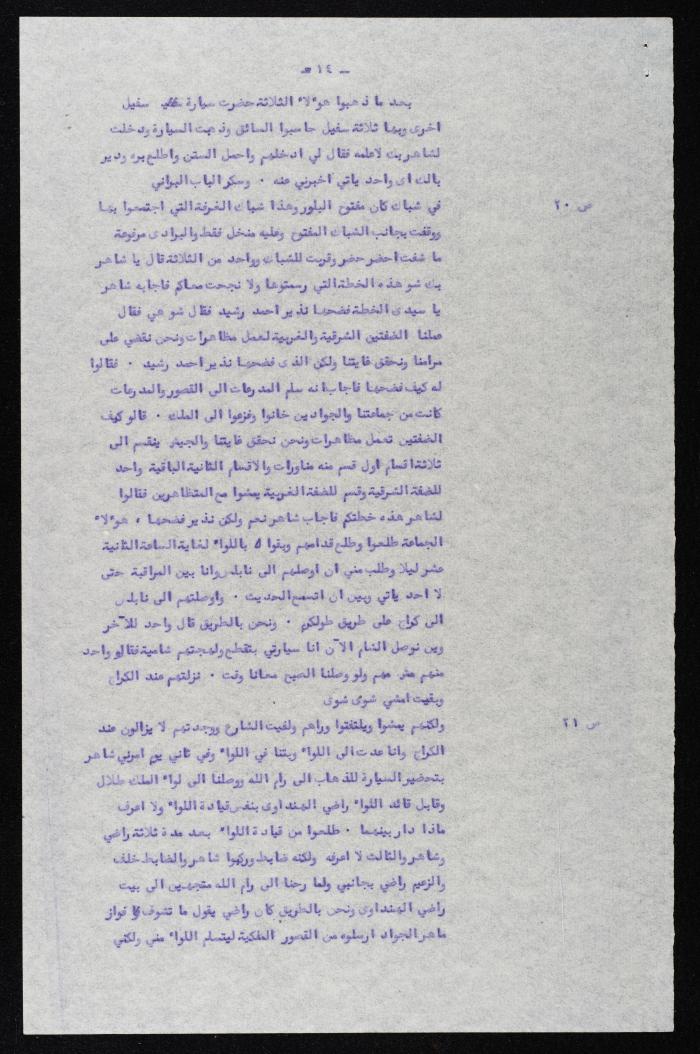 ـ ١٤ ـ
بعد ما ذهبوا هو٠لا٠ الثلاثة حضرت سيارة سفيل
اخرى وبها ثلاثة سفيل حاسبوا السائق وذهبت السيارة ودخلت
لشاهر بك لاعلمه فقال لي ادخلهم واحمل الستن واطلع بره ودير
بالك اى واحد ياتي اخبرني عنه ٠ وسكر الباب البراني
ص ٢٠
في شباك كان مفتوح البلور وهذا شباك الغرفة التي اجتمعوا بها
ووقفت بجانب الشباك المفتوح وعليه منخل فقط والبرادى مرفوعة
ما شفت احضر حضر وقربت للشباك وواحد من الثلاثة قال يا شاهر
بك شو هذه الخطة التي رسمتوها ولا نجحت معاكم فاجابه شاهر
يا سيدى الخطة فضحها نذير احمد رشيد فقال شو هي فقال
عملنا الضفتين الشرقية والغربية لعمل مظاهرات ونحن نقضي على
مرامنا ونحقق غايتنا ولكن الذى فضحها نذير احمد رشيد ٠ فقالوا
له كيف فضحها فاجاب انه سلم المدرعات الى القصور والمدرعات
كانت من جماعتنا والجوادين خانوا وفزعوا الى الملك ٠ قالو كيف
الضفتين تعمل مظاهرات ونحن نحقق غايتنا والجيش ينقسم الى
ثلاثة اقسام اول قسم منه مناورات والاقسام الثانية الباقية واحد
للضفة الشرقية وقسم للضفة الغربية يمشوا مع المتظاهرين فقالوا
لشاهر هذه خطتكم فاجاب شاهر نعم ولكن نذير فضحها ٠ هو٠لا٠
الجماعة طلعوا وطلع قدامهم وبقوا ٥ باللوا٠ لغاية الساعة الثانية
عشر ليلا وطلب مني ان اوصلهم الى نابلس وانا بين المراقبة حتى
لا احد ياتي وبين ان اتسمع الحديث ٠ واوصلتهم الى نابلس
الى كراج على طريق طولكرم ٠ ونحن بالطريق قال واحد للآخر
وين نوصل الشام الآن انا سيارتي بتقطع ولهجتهم شامية فقالو واحد
منهم مش مهم ولو وصلنا الصبح معانا وقت ٠ نزلتهم عند الكراج
وبقيت امشي شوى شوى
ص ٢١
ولكنهم يمشوا ويلتفتوا وراهم ولفيت الشارع ووجدتهم لا يزالون عند
الكراج وانا عدت الى اللوا٠ وبتنا في اللوا٠ وفي ثاني يوم امرني شاهر
بتحضير السيارة للذهاب الى رام الله ووصلنا الى لوا٠ الملك طلال
وقابل قائد اللوا٠ راضي الهنداوى بنفس قيادة اللوا٠ ولا اعرف
ماذا دار بينهما ٠ طلعوا من قيادة اللوا٠ بعد مدة ثلاثة راضي
وشاهر والثالث لا اعرفه ولكنه ضابط وركبوا شاهر والضابط خلف
والزعيم راضي بجانبي ولما رحنا الى رام الله متجهين الى بيت
راضي الهنداوى ونحن بالطريق كان راضي يقول ما تشوف فواز
ماهر الجواد ارسلوه من القصور الملكية ليتسلم اللوا٠ مني ولكني